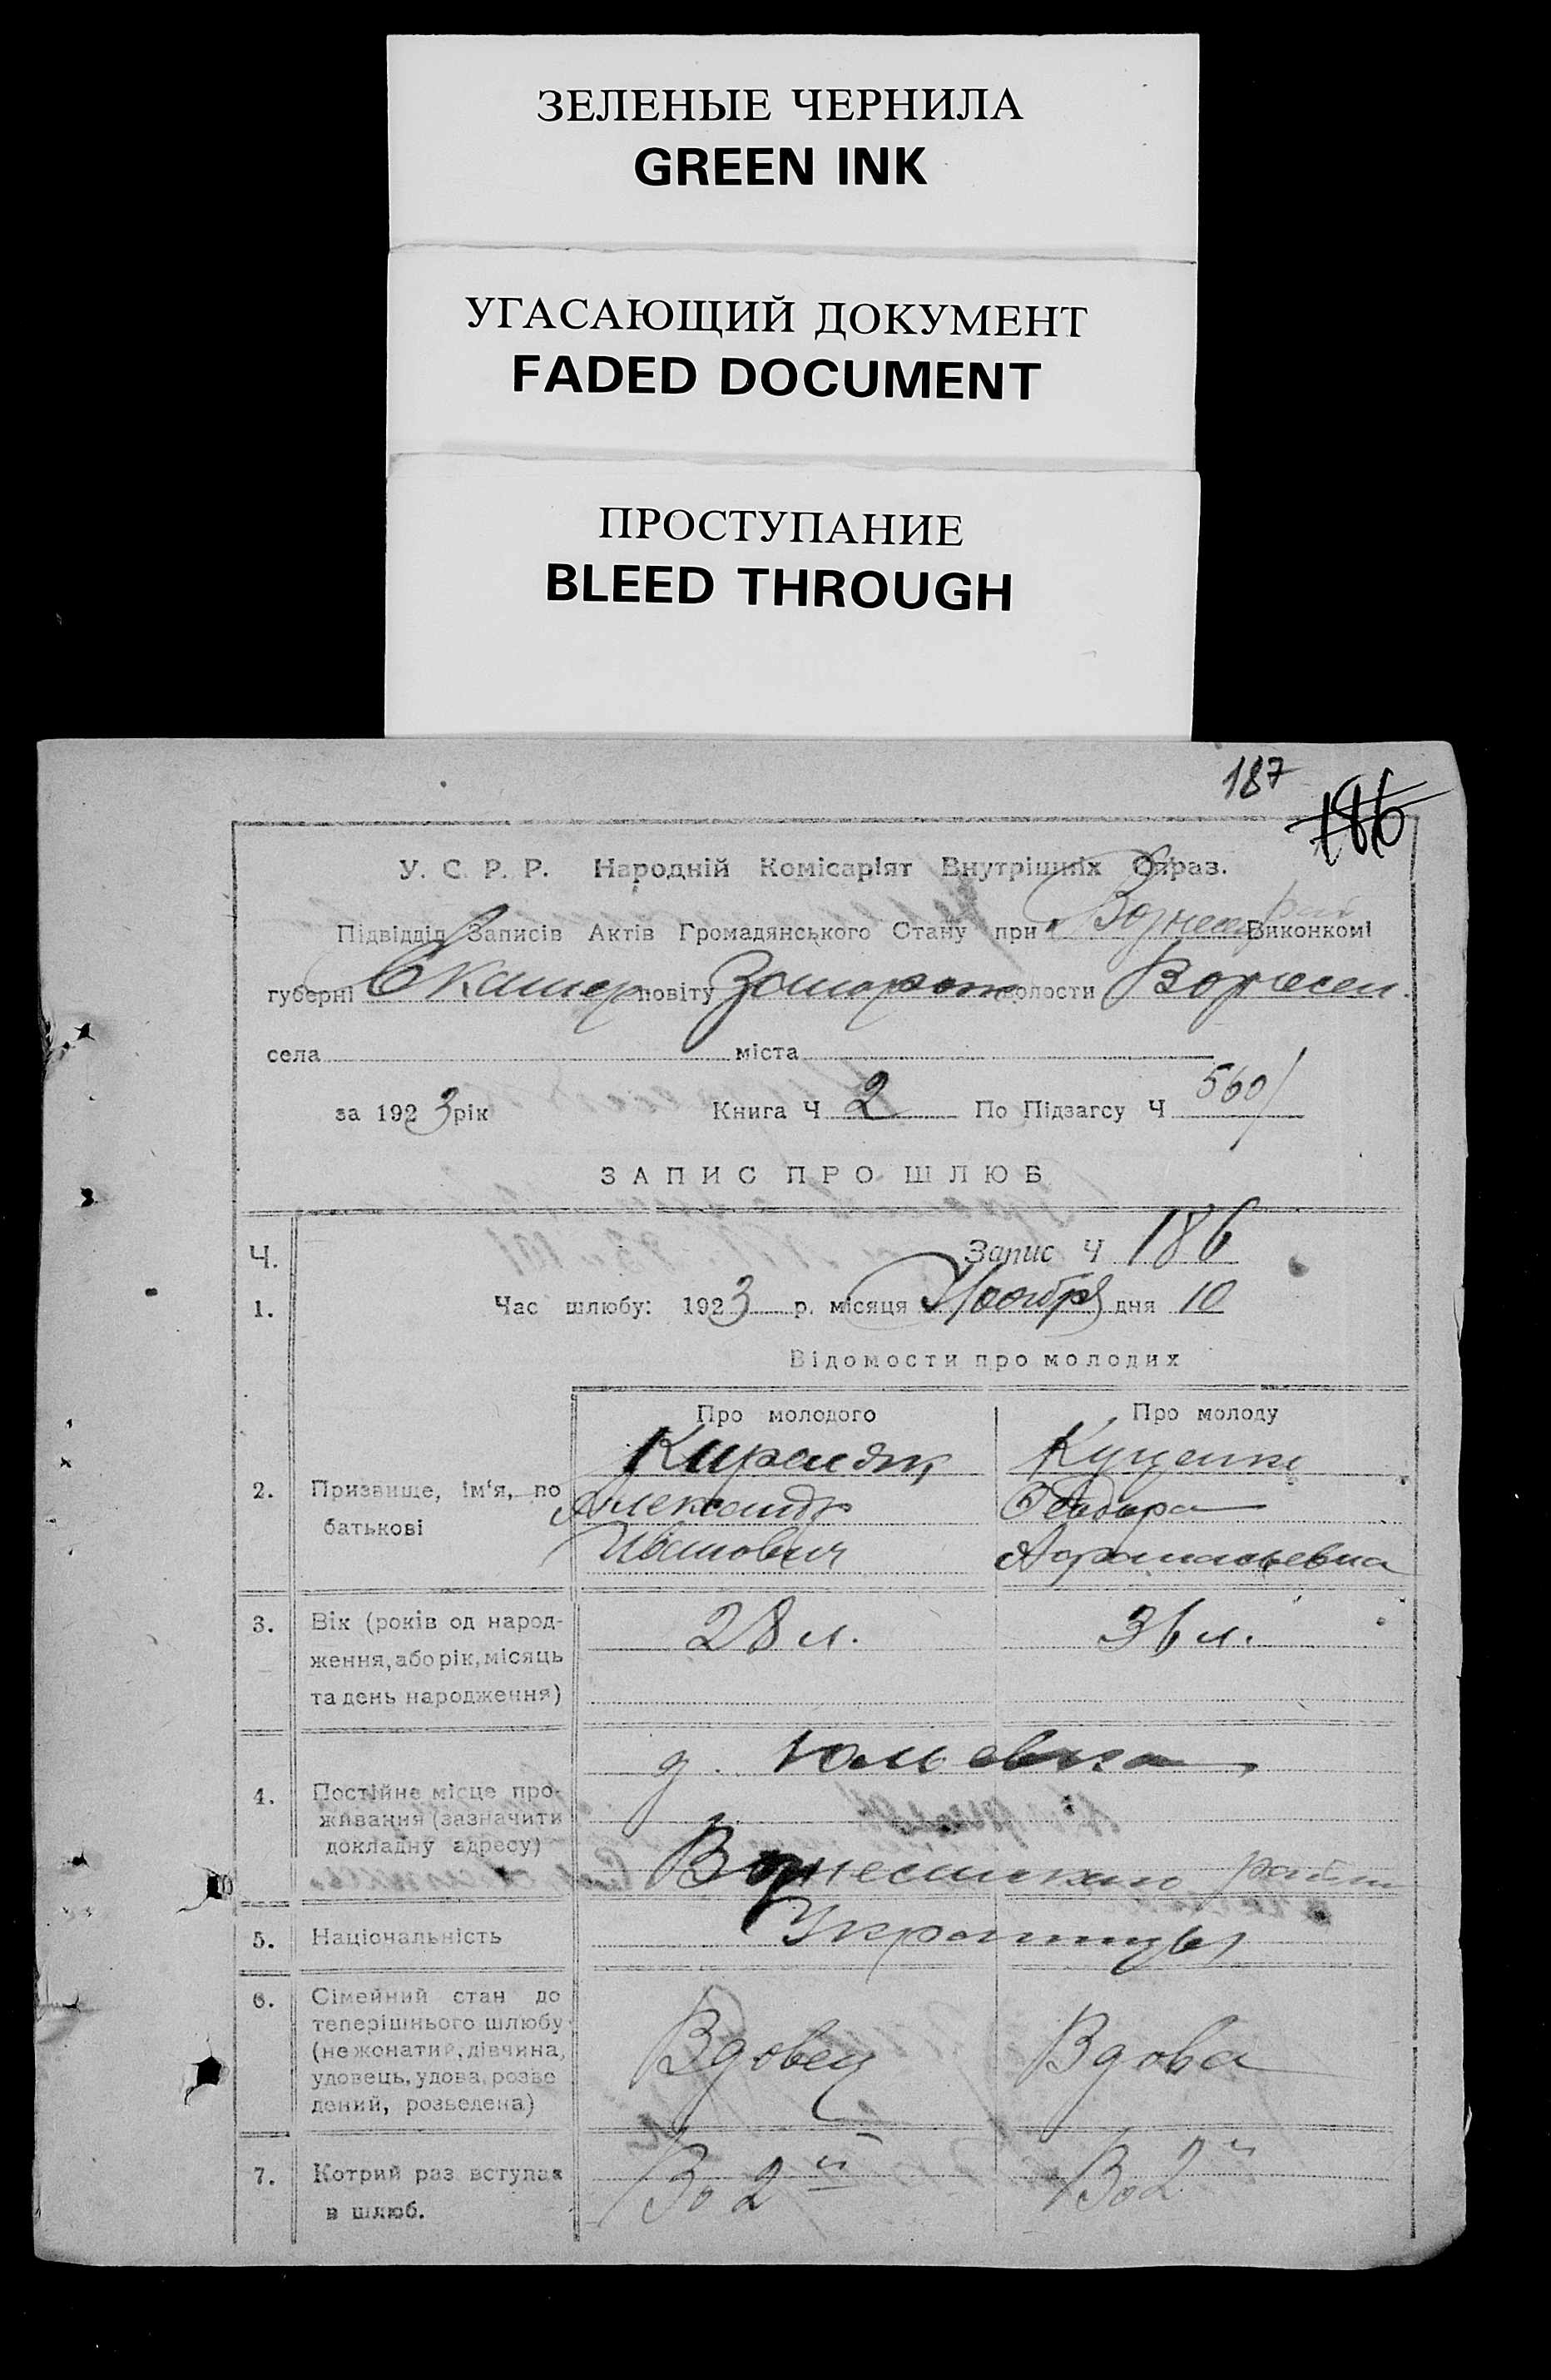 ЗЕЛЕНЫЕ ЧЕРНИЛА
GREEN INK
УГАСАЮЩИЙ ДОКУМЕНТ
FADED DOCUMENT
ПРОСТУПАНИЕ
BLEED THROUGH
187
186
У. С. Р. Р. Народній Комісаріят Внутрішніх Справ.
Підвідділ Записів Актів Громадянського Стану при Вознесен рай Виконкомі
губерні Екатер повіту Запорож волости Вознесен.
села міста
за 1923 рік Книга Ч 2 По Підзагсу Ч 560/
ЗАПИС ПРО ШЛЮБ
Ч. Запис Ч 186
1. Час шлюбу: 1923 р. місяця Ноября дня 10
Відомости про молодих
Про молодого Про молоду
2. Призвище, ім'я, по батькові
Александр
Иванович
Куценко
Феодора
Афанасьевна
3. Вік (років од народ-
ження, або рік, місяць
та день народження)
28 л. 36 л.
4. Постійне місце про-
живання (зазначити
докладну адресу)
д. Юльевка
Вознесенскаго района
5. Національність Украинцы
6. Сімейний стан до
теперішнього шлюбу
(нежонатий, дівчина,
удовець, удова, розве
дений, розведена)
Вдовец Вдова
7. Котрий раз вступає
в шлюб.
Во 2й Во 2й